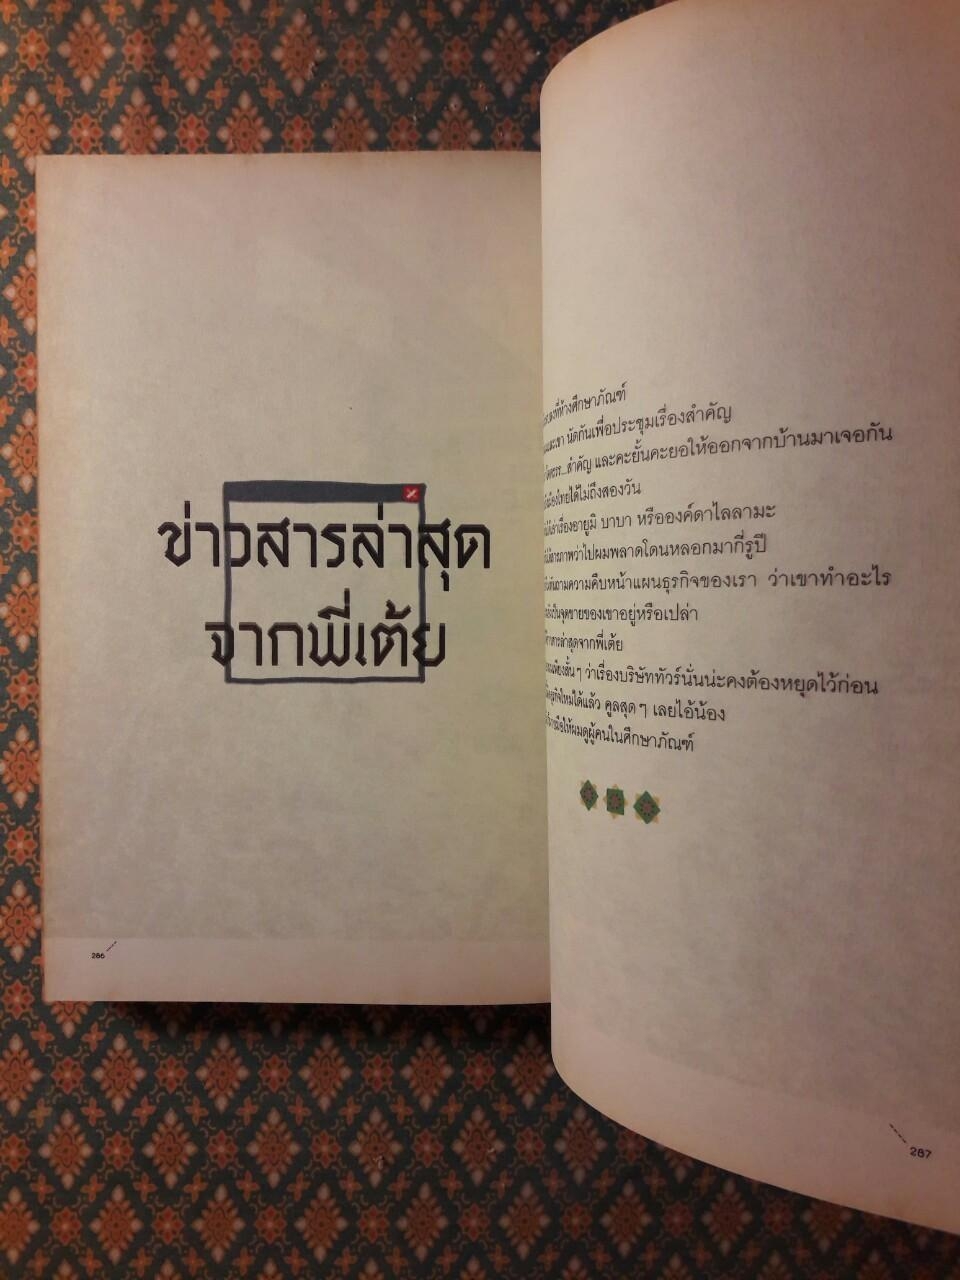 ข่าวสารล่าสุด
จากพี่เต้ย
286
ที่ห้างศึกษาภัณฑ์
นัดกันเพื่อประชุมเรื่องสำคัญ
สำคัญ และคะยั้นคะยอให้ออกจากบ้านมาเจอกัน
เมืองไทยได้ไม่ถึงสองวัน
เล่าเรื่องอายูมิ บาบา หรือองค์ดาไลลามะ
สารภาพว่าไปผมพลาดโดนหลอกมากี่รูปี
ถามความคืบหน้าแผนธุรกิจของเรา ว่าเขาทำอะไร
เป็นจุดขายของเขาอยู่หรือเปล่า
ข่าวสารล่าสุดจากพี่เต้ย
เพียงสั้นๆ ว่าเรื่องบริษัททัวร์นั่นน่ะคงต้องหยุดไว้ก่อน
ธุรกิจใหม่ได้แล้ว คูลสุดๆ เลยไอ้น้อง
มือให้ผมดูผู้คนในศึกษาภัณฑ์
287